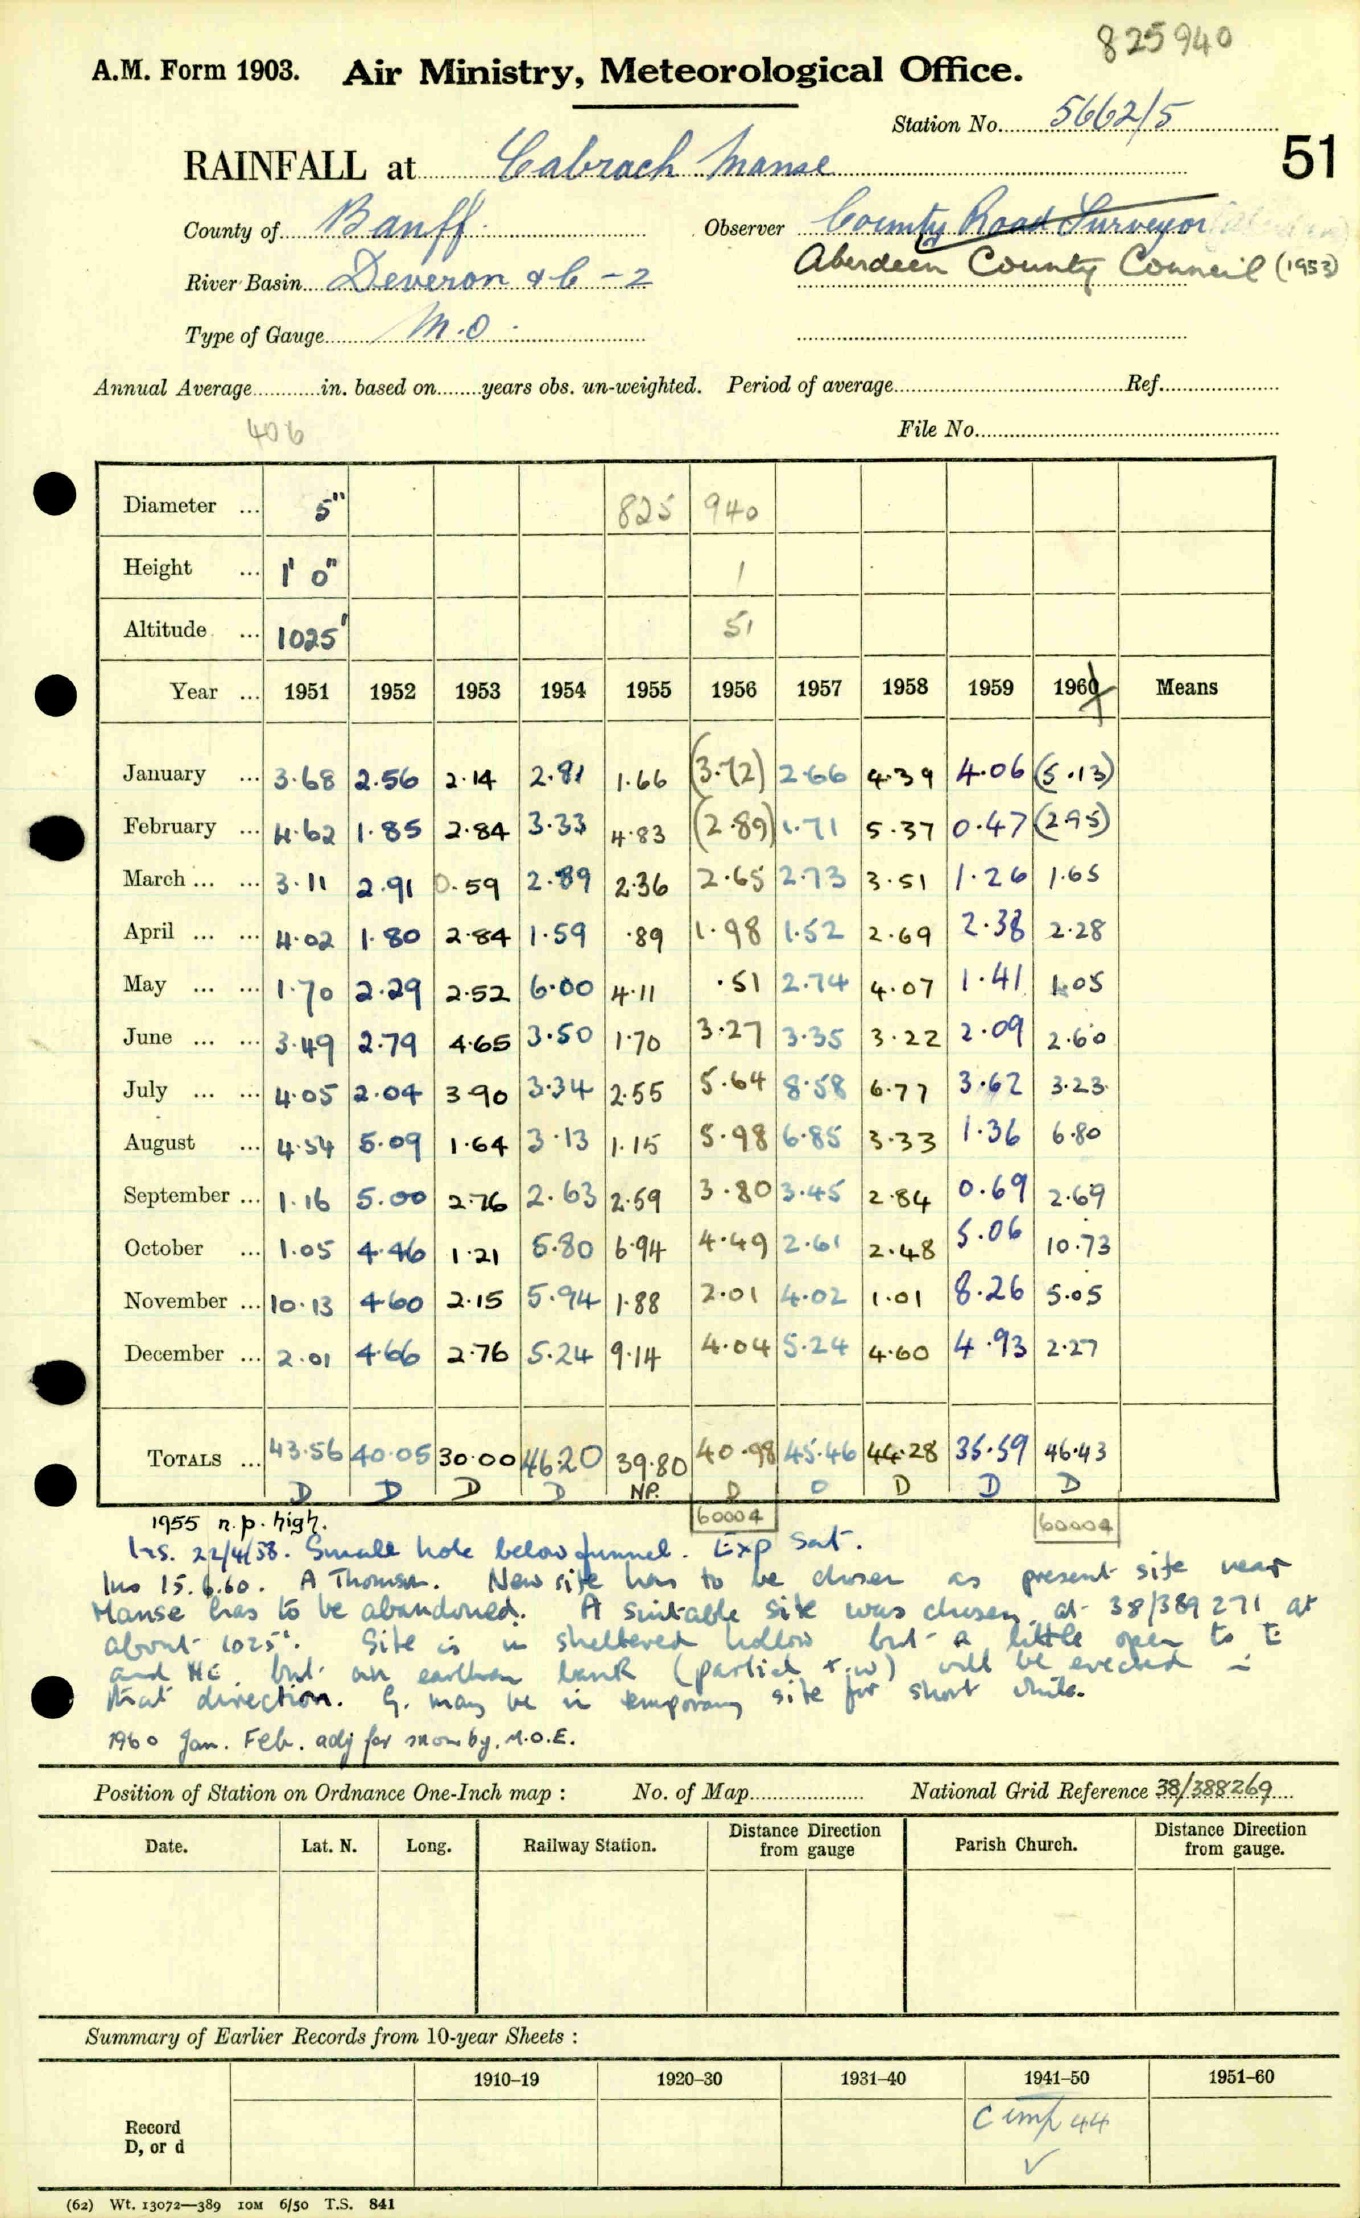 825940
A.M. Form 1903. Air Ministry, Meteorological Office.
Station No. 5662/5
51
RAINFALL at Cabrach Manse
County of Banff. Observer County Road Surveyor
Aberdeen County Council (1953)
River Basin Deveron & C - 2
Type of Gauge M.O.
Annual Average in. based on years obs. un-weighted. Period of average Ref.
406
File No.
Diameter ... 5" 825 940
Height ... 1' 0" 1
Altitude ... 1025' 51
Year ... 1951 1952 1953 1954 1955 1956 1957 1958 1959 1960 Means
January ... 3.68 2.56 2.14 2.81 1.66 (3.72) 2.66 4.39 4.06 (5.13)
February ... 4.62 1.85 2.84 3.33 4.83 (2.89) 1.71 5.37 0.47 (2.95)
March ... ... 3.11 2.91 0.59 2.89 2.36 2.65 2.73 3.51 1.26 1.65
April ... ... 4.02 1.80 2.84 1.59 .89 1.98 1.52 2.69 2.38 2.28
May ... ... 1.70 2.29 2.52 6.00 4.11 .51 2.74 4.07 1.41 1.05
June ... ... 3.49 2.79 4.65 3.50 1.70 3.27 3.35 3.22 2.09 2.60
July ... ... 4.05 2.04 3.90 3.34 2.55 5.64 8.58 6.77 3.62 3.23
August ... 4.54 5.09 1.64 3.13 1.15 5.98 6.85 3.33 1.36 6.80
September ... 1.16 5.00 2.76 2.63 2.59 3.80 3.45 2.84 0.69 2.69
October ... 1.05 4.46 1.21 5.80 6.94 4.49 2.61 2.48 5.06 10.73
November ... 10.13 4.60 2.15 5.94 1.88 2.01 4.02 1.01 8.26 5.05
December ... 2.01 4.66 2.76 5.24 9.14 4.04 5.24 4.60 4.93 2.27
TOTALS ... 43.56 40.05 30.00 46.20 39.80 40.98 45.46 44.28 35.59 46.43
D D D D NP. D D D D D
60004 60004
1955 n.p. high.
Ins. 22/4/58. Small hole below funnel. Exp Sat.
Ins 15.6.60. A Thomson. New site has to be chosen as present site near
Manse has to be abandoned. A suitable site was chosen at 38/389271 at
about 1025'. Site is in sheltered hollow but a little open to E
and NE but an earthen bank (partial t.w) will be erected in
that direction. G. may be in temporary site for short while.
1960 Jan. Feb. adj for snow by. M.O.E.
Position of Station on Ordnance One-Inch map : No. of Map National Grid Reference 38/388269
Date. Lat. N. Long. Railway Station. Distance Direction from gauge Parish Church. Distance Direction from gauge.
Summary of Earlier Records from 10-year Sheets :
1910–19 1920–30 1931–40 1941–50 1951–60
Record
D, or d
44
(62) Wt. 13072—389 10M 6/50 T.S. 841